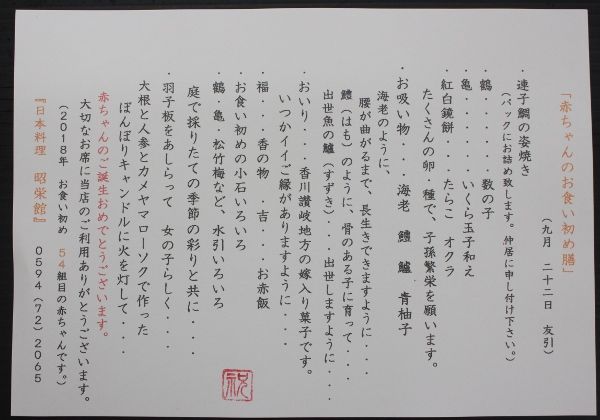 「赤ちゃんのお食い初め膳」
(九月 二十二日 友引)
・連子鯛の姿焼き
(パックにお詰め致します。仲居に申し付け下さい。)
・鶴・・・・・・数の子
・亀・・・・・・いくら玉子和え
・紅白鏡餅・・・・たらこ オクラ
たくさんの卵・種で、子孫繁栄を願います。
・お吸い物・・・・海老 鱧 鱸 青柚子
海老のように、
腰が曲がるまで、長生きできますように・・・・
鱧(はも)のように、骨のある子に育って・・・・
出世魚の鱸(すずき)・・・出世しますように・・・・
・おいり・・・・香川讃岐地方の嫁入り菓子です。
いつかイイご縁がありますように・・・・
・福・・・香の物 ・吉・・・お赤飯
・お食い初めの小石いろいろ
・鶴・亀・松竹梅など、水引いろいろ
庭で採りたての季節の彩りと共に・・・・
・羽子板をあしらって 女の子らしく・・・・
大根と人参とカメヤマローソクで作った
ぼんぼりキャンドルに火を灯して・・・・
赤ちゃんのご誕生おめでとうございます。
大切なお席に当店のご利用ありがとうございます。
(2018年 お食い初め 54組目の赤ちゃんです。)
『日本料理 昭栄館』 0594(72)2065
祝